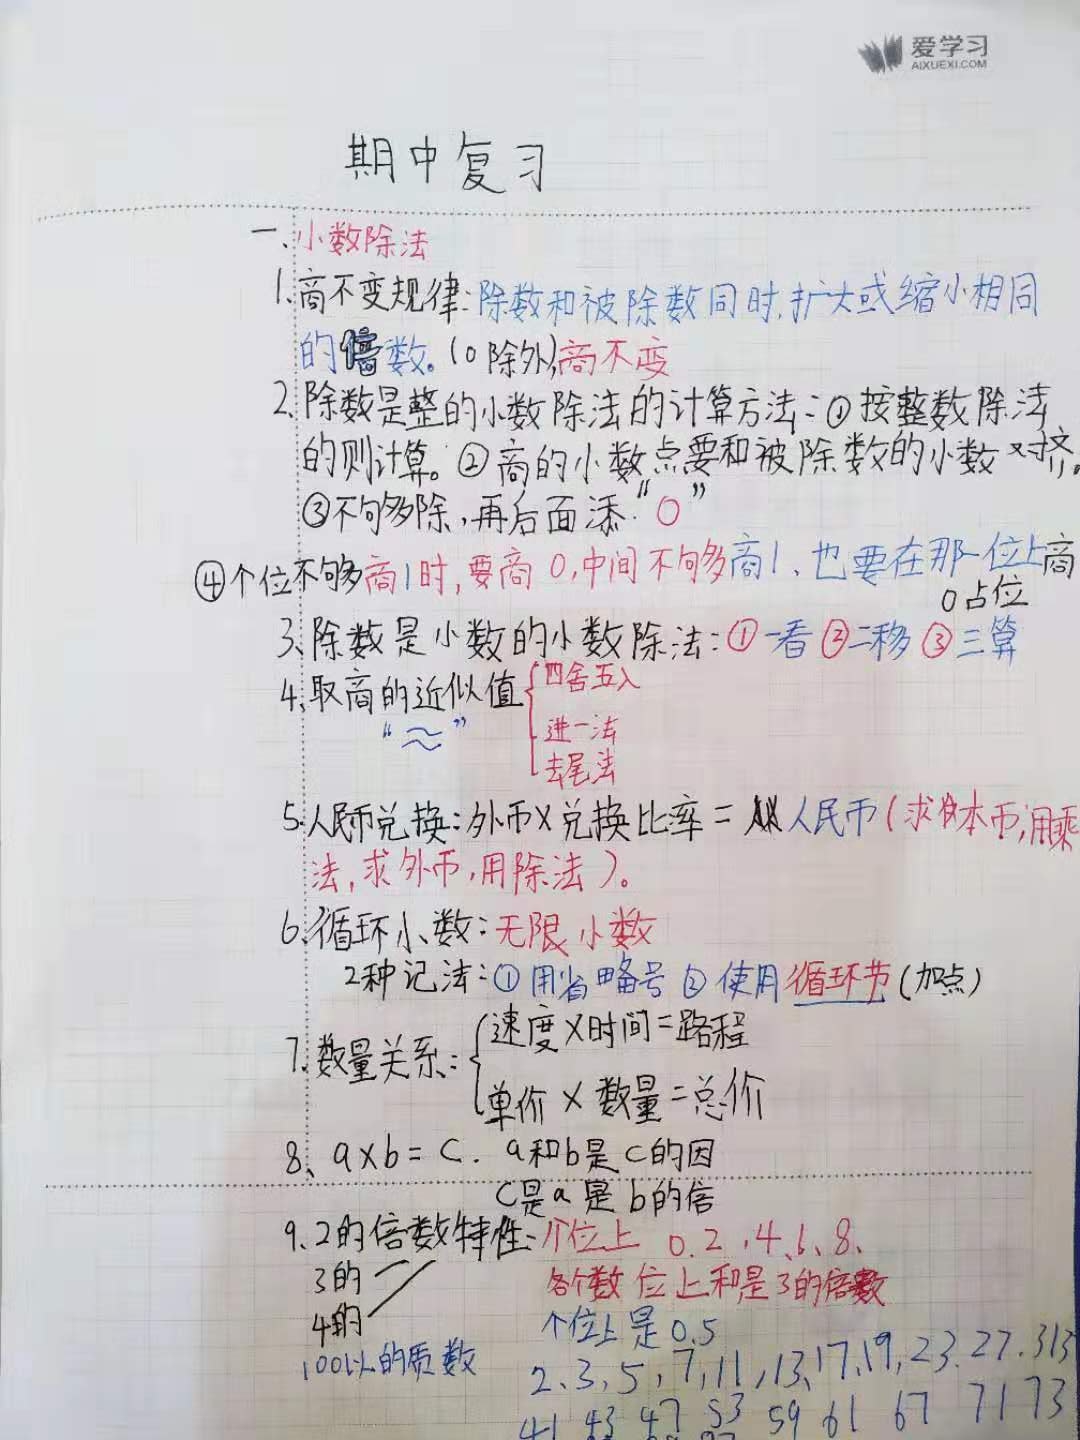 爱学习
AIXUEXI.COM
期中复习
一、小数除法
1、商不变规律:除数和被除数同时,扩大或缩小相同
的倍数。(0除外),商不变
2、除数是整的小数除法的计算方法:①按整数除法
的则计算。②商的小数点要和被除数的小数对齐。
③不够除,再后面添“0”
④个位不够商1时,要商0,中间不够商1、也要在那一位上商
0占位
3、除数是小数的小数除法:①一看②二移③三算
4、取商的近似值
四舍五入
“≈”
进一法
去尾法
5、人民币兑换:外币×兑换比率=人民币(求本币,用乘
法,求外币,用除法)。
6、循环小数:无限小数
2种记法:①用省略号②使用循环节(加点)
7、数量关系:
速度×时间=路程
单价×数量=总价
8、a×b=c. a和b是c的因
c是a是b的倍
9、2的倍数特性:个位上 0.2,4、6、8、
3的 各个数位上和是3的倍数
4的 个位上是0.5
100以的质数 2、3,5,7,11,13、17、19,23.27.31
41 43 47 53 59 61 67 71 73